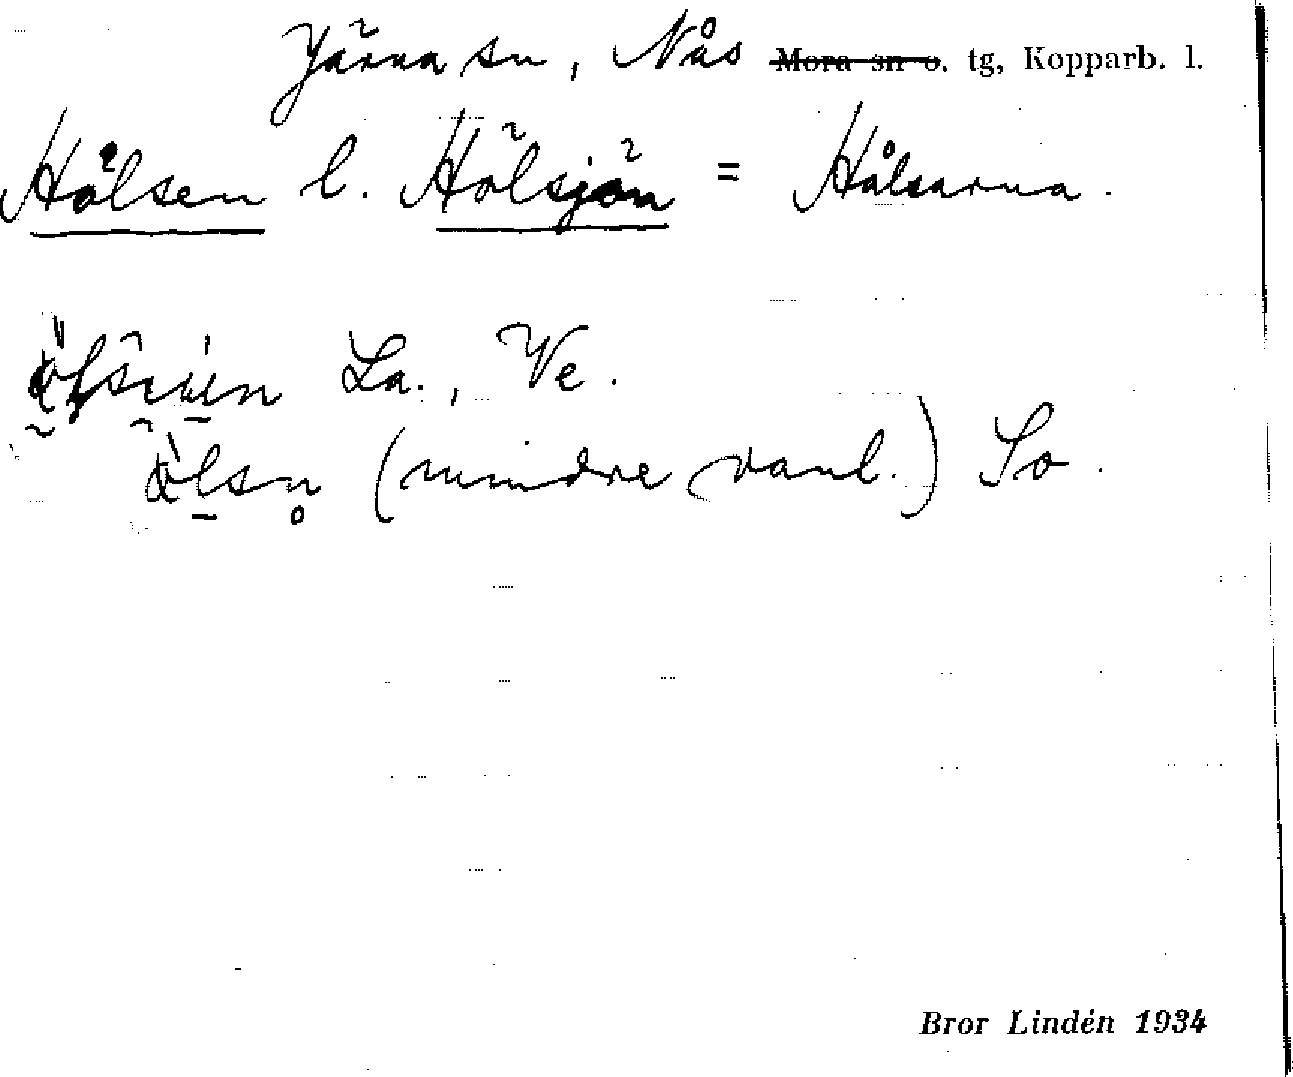 Järna sn, Nås ~~Mora sn o~~. tg, Kopparb. l.
Hålsen l. Hölsjön = Hålsarna.
La., Ve.
(mindre vanl.) So.
Bror Lindén 1934